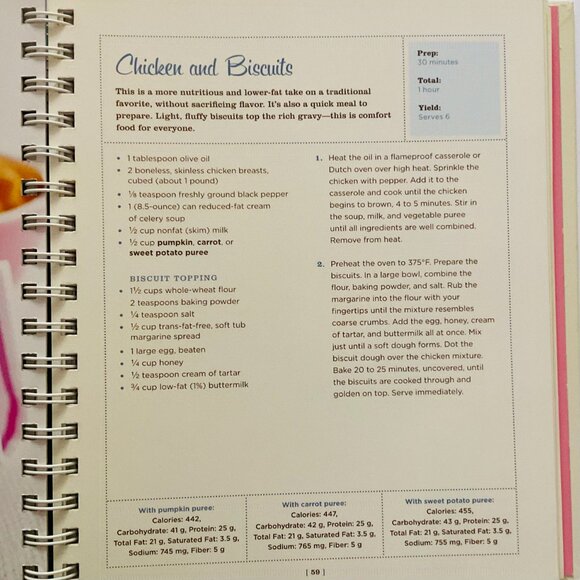 Chicken and Biscuits
This is a more nutritious and lower-fat take on a traditional
favorite, without sacrificing flavor. It's also a quick meal to
prepare. Light, fluffy biscuits top the rich gravy—this is comfort
food for everyone.
Prep:
30 minutes
Total:
1 hour
Yield:
Serves 6
• 1 tablespoon olive oil
• 2 boneless, skinless chicken breasts,
cubed (about 1 pound)
• ⅛ teaspoon freshly ground black pepper
• 1 (8.5-ounce) can reduced-fat cream
of celery soup
• ½ cup nonfat (skim) milk
• ½ cup pumpkin, carrot, or
sweet potato puree
BISCUIT TOPPING
• 1½ cups whole-wheat flour
2 teaspoons baking powder
• ¼ teaspoon salt
• ½ cup trans-fat-free, soft tub
margarine spread
• 1 large egg, beaten
• ¼ cup honey
• ½ teaspoon cream of tartar
• ¾ cup low-fat (1%) buttermilk
1. Heat the oil in a flameproof casserole or
Dutch oven over high heat. Sprinkle the
chicken with pepper. Add it to the
casserole and cook until the chicken
begins to brown, 4 to 5 minutes. Stir in
the soup, milk, and vegetable puree
until all ingredients are well combined.
Remove from heat.
2. Preheat the oven to 375°F. Prepare the
biscuits. In a large bowl, combine the
flour, baking powder, and salt. Rub the
margarine into the flour with your
fingertips until the mixture resembles
coarse crumbs. Add the egg, honey, cream
of tartar, and buttermilk all at once. Mix
just until a soft dough forms. Dot the
biscuit dough over the chicken mixture.
Bake 20 to 25 minutes, uncovered, until
the biscuits are cooked through and
golden on top. Serve immediately.
With pumpkin puree:
Calories: 442,
Carbohydrate: 41 g, Protein: 25 g,
Total Fat: 21 g, Saturated Fat: 3.5 g,
Sodium: 745 mg, Fiber: 5 g
With carrot puree:
Calories: 447,
Carbohydrate: 42 g, Protein: 25 g,
Total Fat: 21 g, Saturated Fat: 3.5 g,
Sodium: 765 mg, Fiber: 5 g
With sweet potato puree:
Calories: 455,
Carbohydrate: 43 g, Protein: 25 g,
Total Fat: 21 g, Saturated Fat: 3.5 g,
Sodium: 755 mg, Fiber: 5 g
[ 59 ]